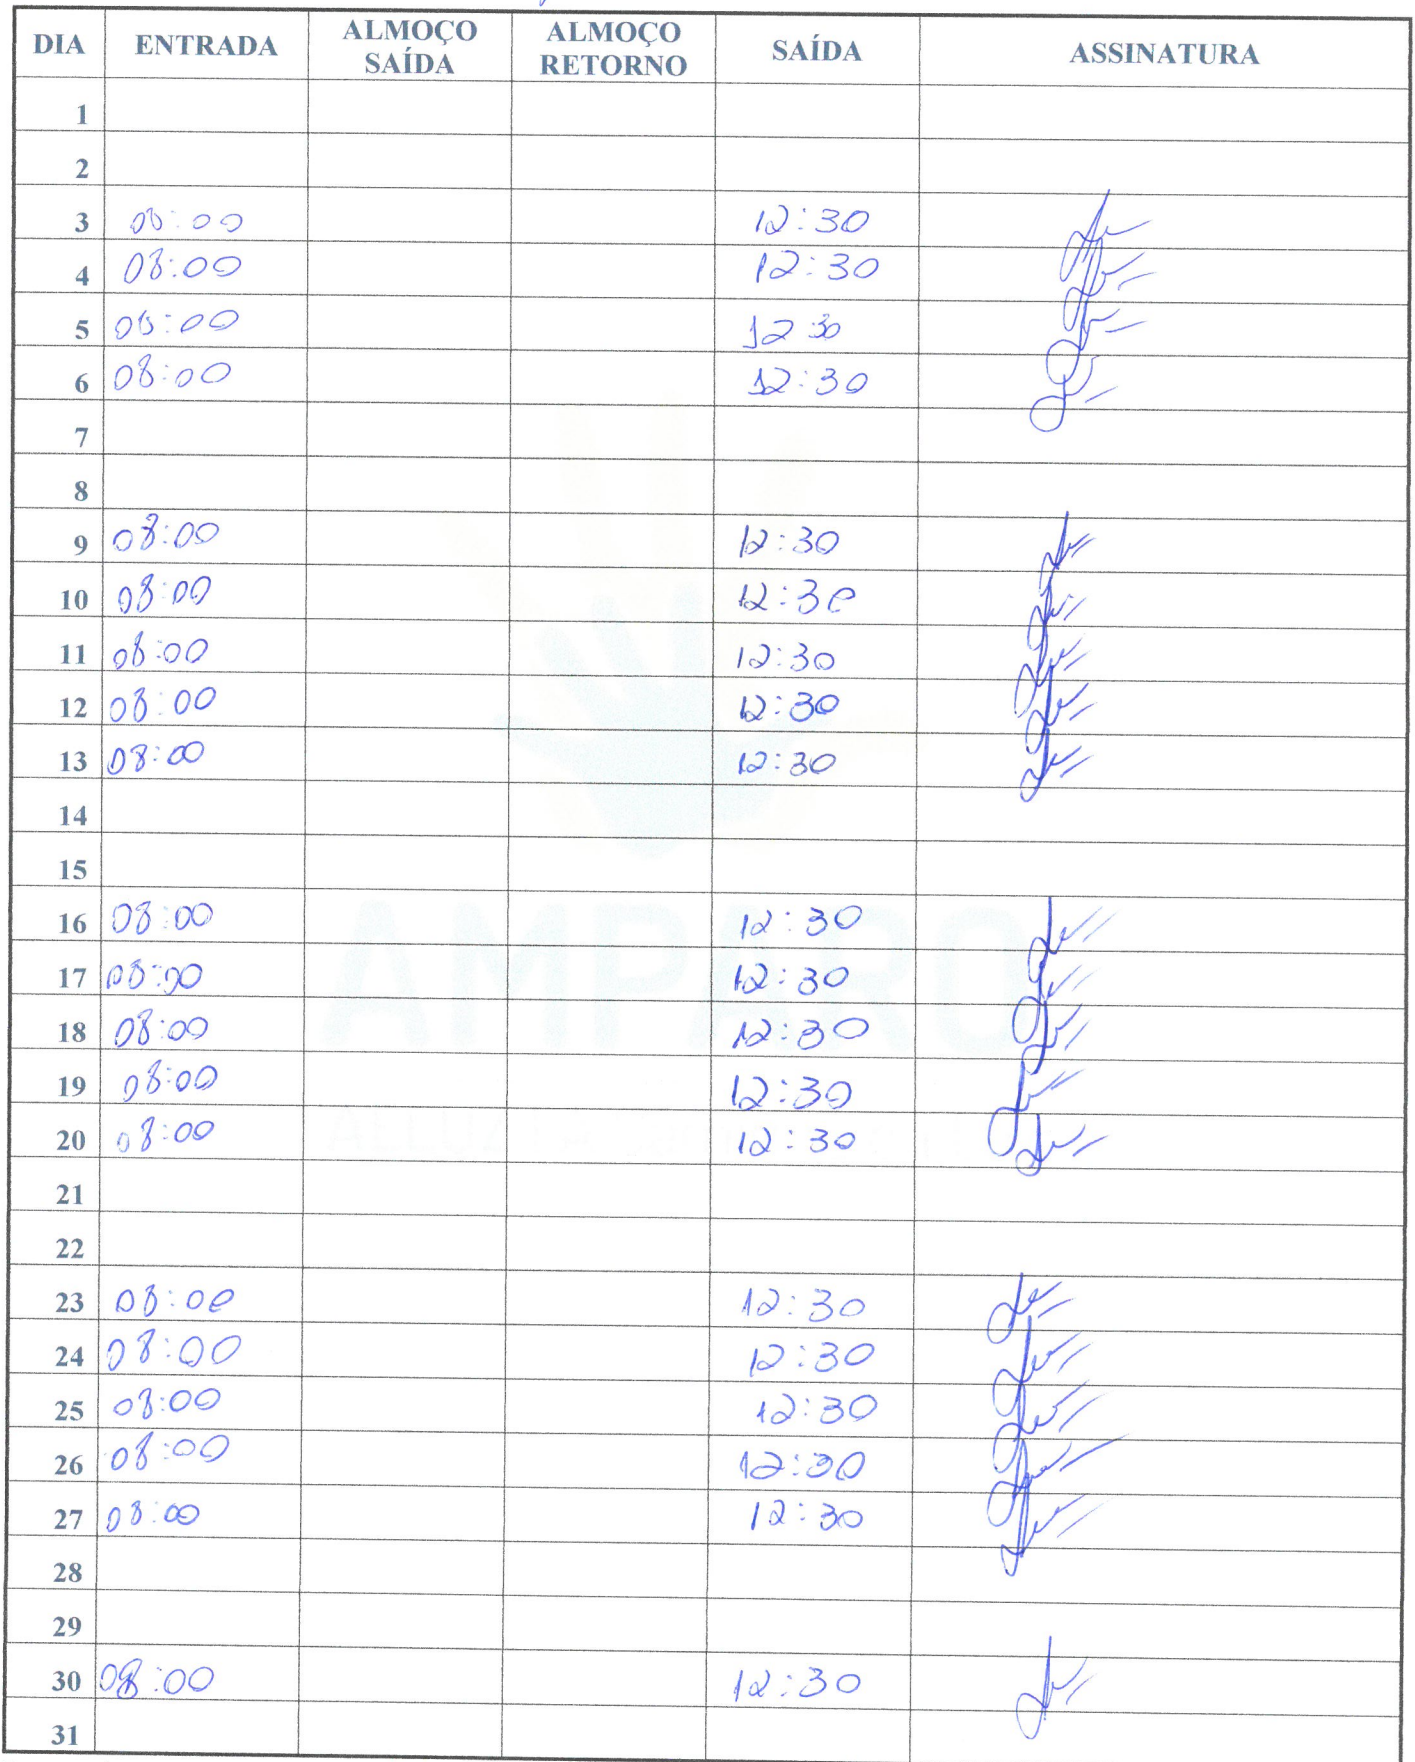 DIA ENTRADA ALMOÇO SAÍDA ALMOÇO RETORNO SAÍDA ASSINATURA
1
2
3 08:00 12:30
4 08:00 12:30
5 08:00 12:30
6 08:00 12:30
7
8
9 08:00 12:30
10 08:00 12:30
11 08:00 12:30
12 08:00 12:30
13 08:00 12:30
14
15
16 08:00 12:30
17 08:00 12:30
18 08:00 12:30
19 08:00 12:30
20 08:00 12:30
21
22
23 08:00 12:30
24 08:00 12:30
25 08:00 12:30
26 08:00 12:30
27 08:00 12:30
28
29
30 08:00 12:30
31
AMPARO